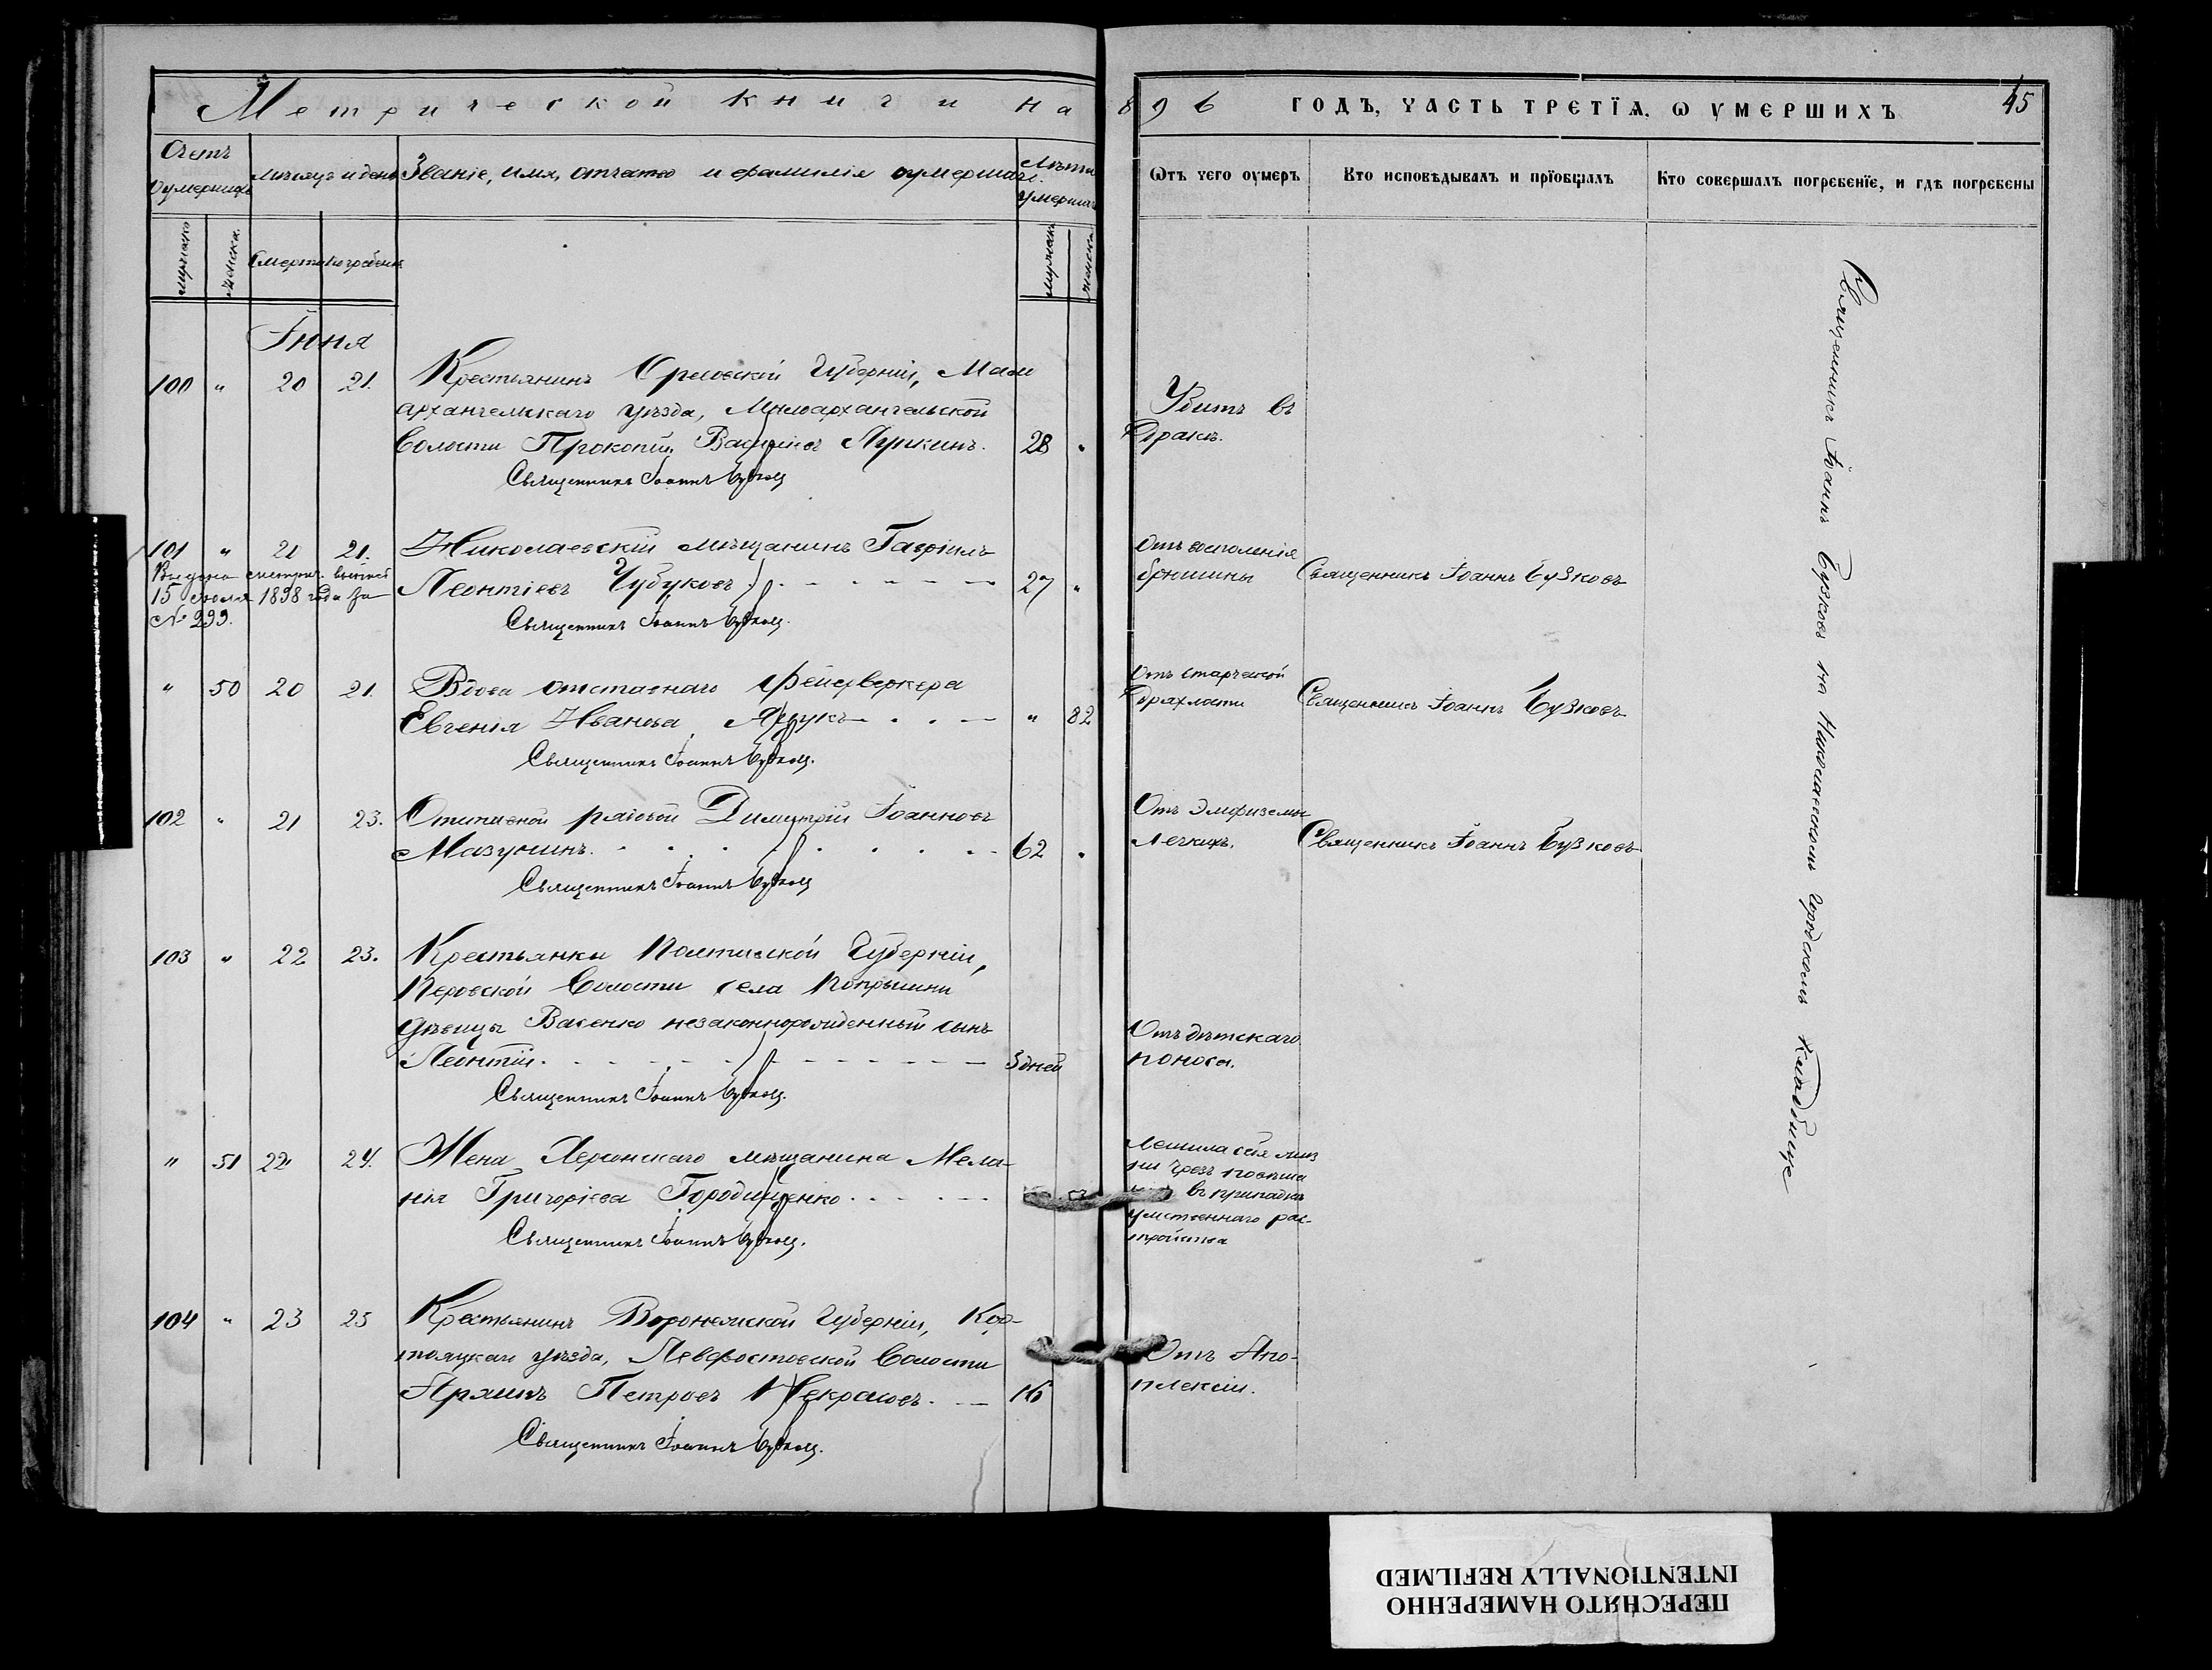 Метрической книги на
Счетъ умершихъ
Мѣсяцъ и день
Званіе, имя, отчество и фамилія умершаго.
Лѣта умершаго
Мужска
Женска.
Смерти
Погребенія
Мужска
Женска
Іюня
100 " 20 21. Крестьянинъ Орловской Губерніи, Мало
архангельскаго уѣзда, Малоархангельской
Волости Прокопій Васильевъ Лункинъ. 28 "
Священникъ Іоаннъ Бузковъ
101 " 20 21. Николаевскій мѣщанинъ Гавріилъ
Выдана
15 Іюля 1898 года за
№ 299.
Леонтіевъ Чубуковъ 27 "
Священникъ Іоаннъ Бузковъ.
" 50 20 21. Вдова отставнаго Фейерверкера
Евгенія Иванова " 82
Священникъ Іоаннъ Бузковъ.
102 " 21 23. Отставной рядовой Димитрій Іоанновъ
Мазунинъ. 62 "
Священникъ Іоаннъ Бузковъ
103 " 22 23. Крестьянки Полтавской Губерніи,
Волости села
дѣвицы Васенко незаконнорожденный сынъ
Леонтій. 3 дней
Священникъ Іоаннъ Бузковъ.
" 51 22 24. Жена Херсонскаго мѣщанина Мела-
нія Григорієва Городищенко
Священникъ Іоаннъ Бузковъ.
104 " 23 25 Крестьянинъ Воронежской Губерніи, Кор-
тояцкаго уѣзда, Волости
Петровъ Некрасовъ. 16
Священникъ Іоаннъ Бузковъ.
896 ГОДЪ, ЧАСТЬ ТРЕТЇѦ, Ѡ УМЕРШИХЪ 45
Ѿтъ чего оумеръ
Кто исповѣдывалъ и прїобщалъ
Кто совершалъ погребенїе, и гдѣ погребены
Убитъ въ
дракѣ.
Отъ воспаленія
брюшины Священникъ Іоаннъ Бузковъ
Отъ старческой
дряхлости Священникъ Іоаннъ Бузковъ
Отъ Эмфиземы
легкихъ. Священникъ Іоаннъ Бузковъ
Отъ дѣтскаго
поноса.
Лишила себя жиз
ни чрезъ повѣше
въ припадкѣ
умственнаго раз-
стройства
Отъ Апо-
плексіи.
Священникъ Іоаннъ Бузковъ на Николаевскомъ Городскомъ Кладбищѣ
ПЕРЕСНЯТО НАМЕРЕННО
INTENTIONALLY REFILMED